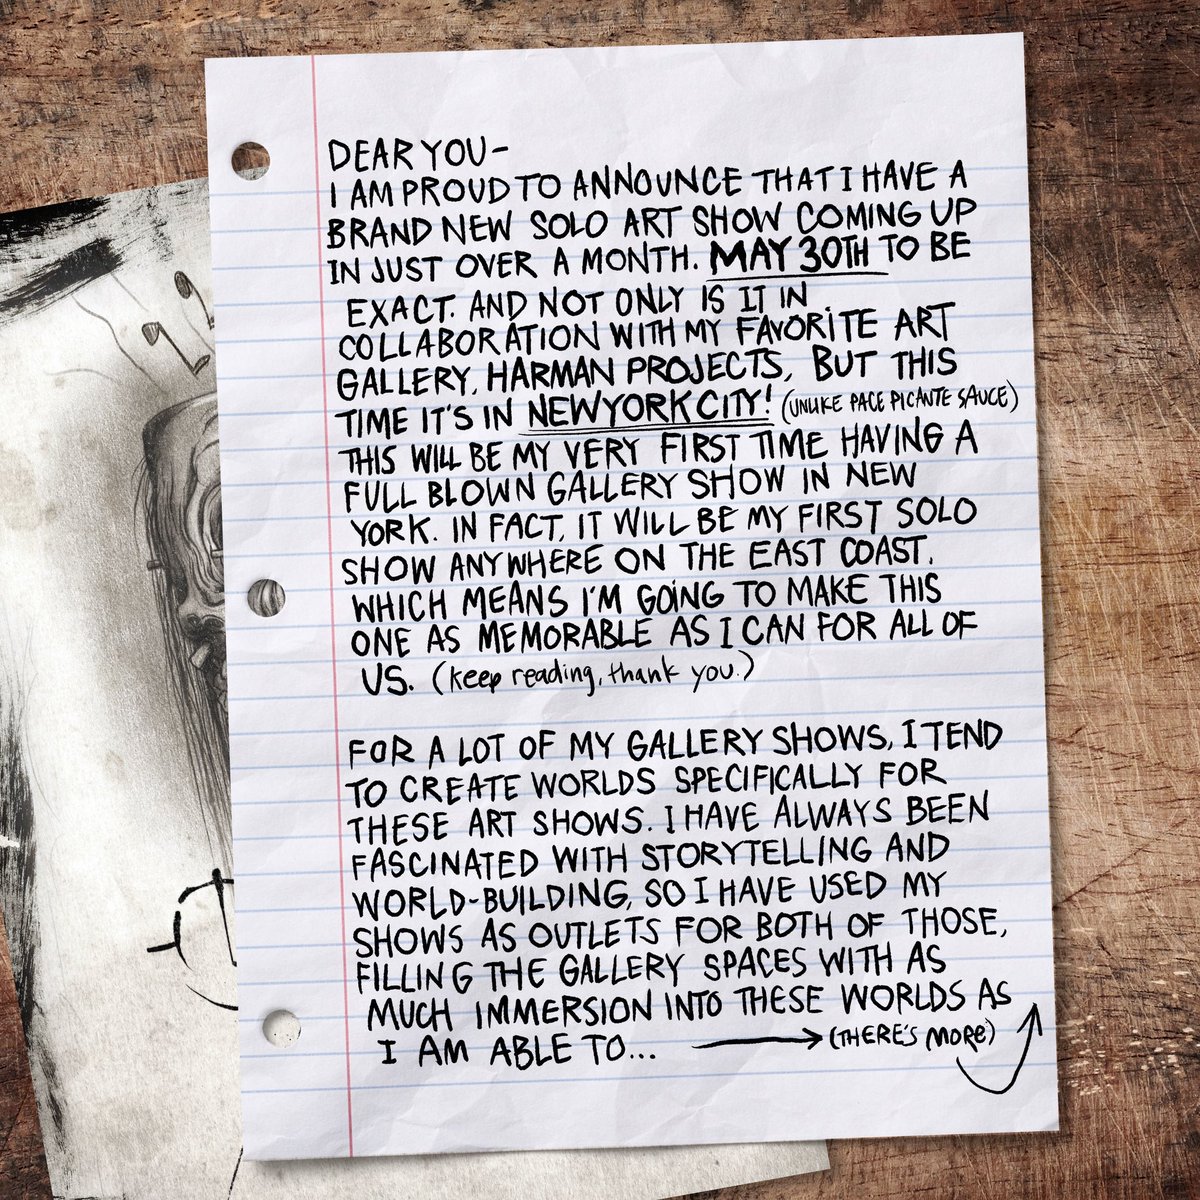 DEAR YOU-
I AM PROUD TO ANNOUNCE THAT I HAVE A
BRAND NEW SOLO ART SHOW COMING UP
IN JUST OVER A MONTH. MAY 30TH TO BE
EXACT. AND NOT ONLY IS IT IN
COLLABORATION WITH MY FAVORITE ART
GALLERY, HARMAN PROJECTS, BUT THIS
TIME IT'S IN NEW YORK CITY! (UNLIKE PACE PICANTE SAUCE)
THIS WILL BE MY VERY FIRST TIME HAVING A
FULL BLOWN GALLERY SHOW IN NEW
YORK. IN FACT, IT WILL BE MY FIRST SOLO
SHOW ANYWHERE ON THE EAST COAST.
WHICH MEANS I'M GOING TO MAKE THIS
ONE AS MEMORABLE AS I CAN FOR ALL OF
US. (keep reading, thank you.)
FOR A LOT OF MY GALLERY SHOWS, I TEND
TO CREATE WORLDS SPECIFICALLY FOR
THESE ART SHOWS. I HAVE ALWAYS BEEN
FASCINATED WITH STORYTELLING AND
WORLD-BUILDING, SO I HAVE USED MY
SHOWS AS OUTLETS FOR BOTH OF THOSE,
FILLING THE GALLERY SPACES WITH AS
MUCH IMMERSION INTO THESE WORLDS AS
I AM ABLE TO... (THERE'S MORE)